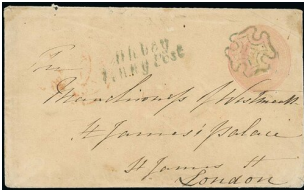 Penny Post
The
Marchioness of Westmeath
St James's Palace
St James St
London